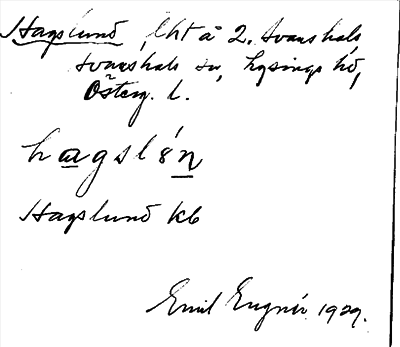 Hagslund, lht å 2. Svanshals,
Svanshals sn, Lysings hd,
Österg. l.
hagslón
Hagslund kb
Emil Eugnér 1929.